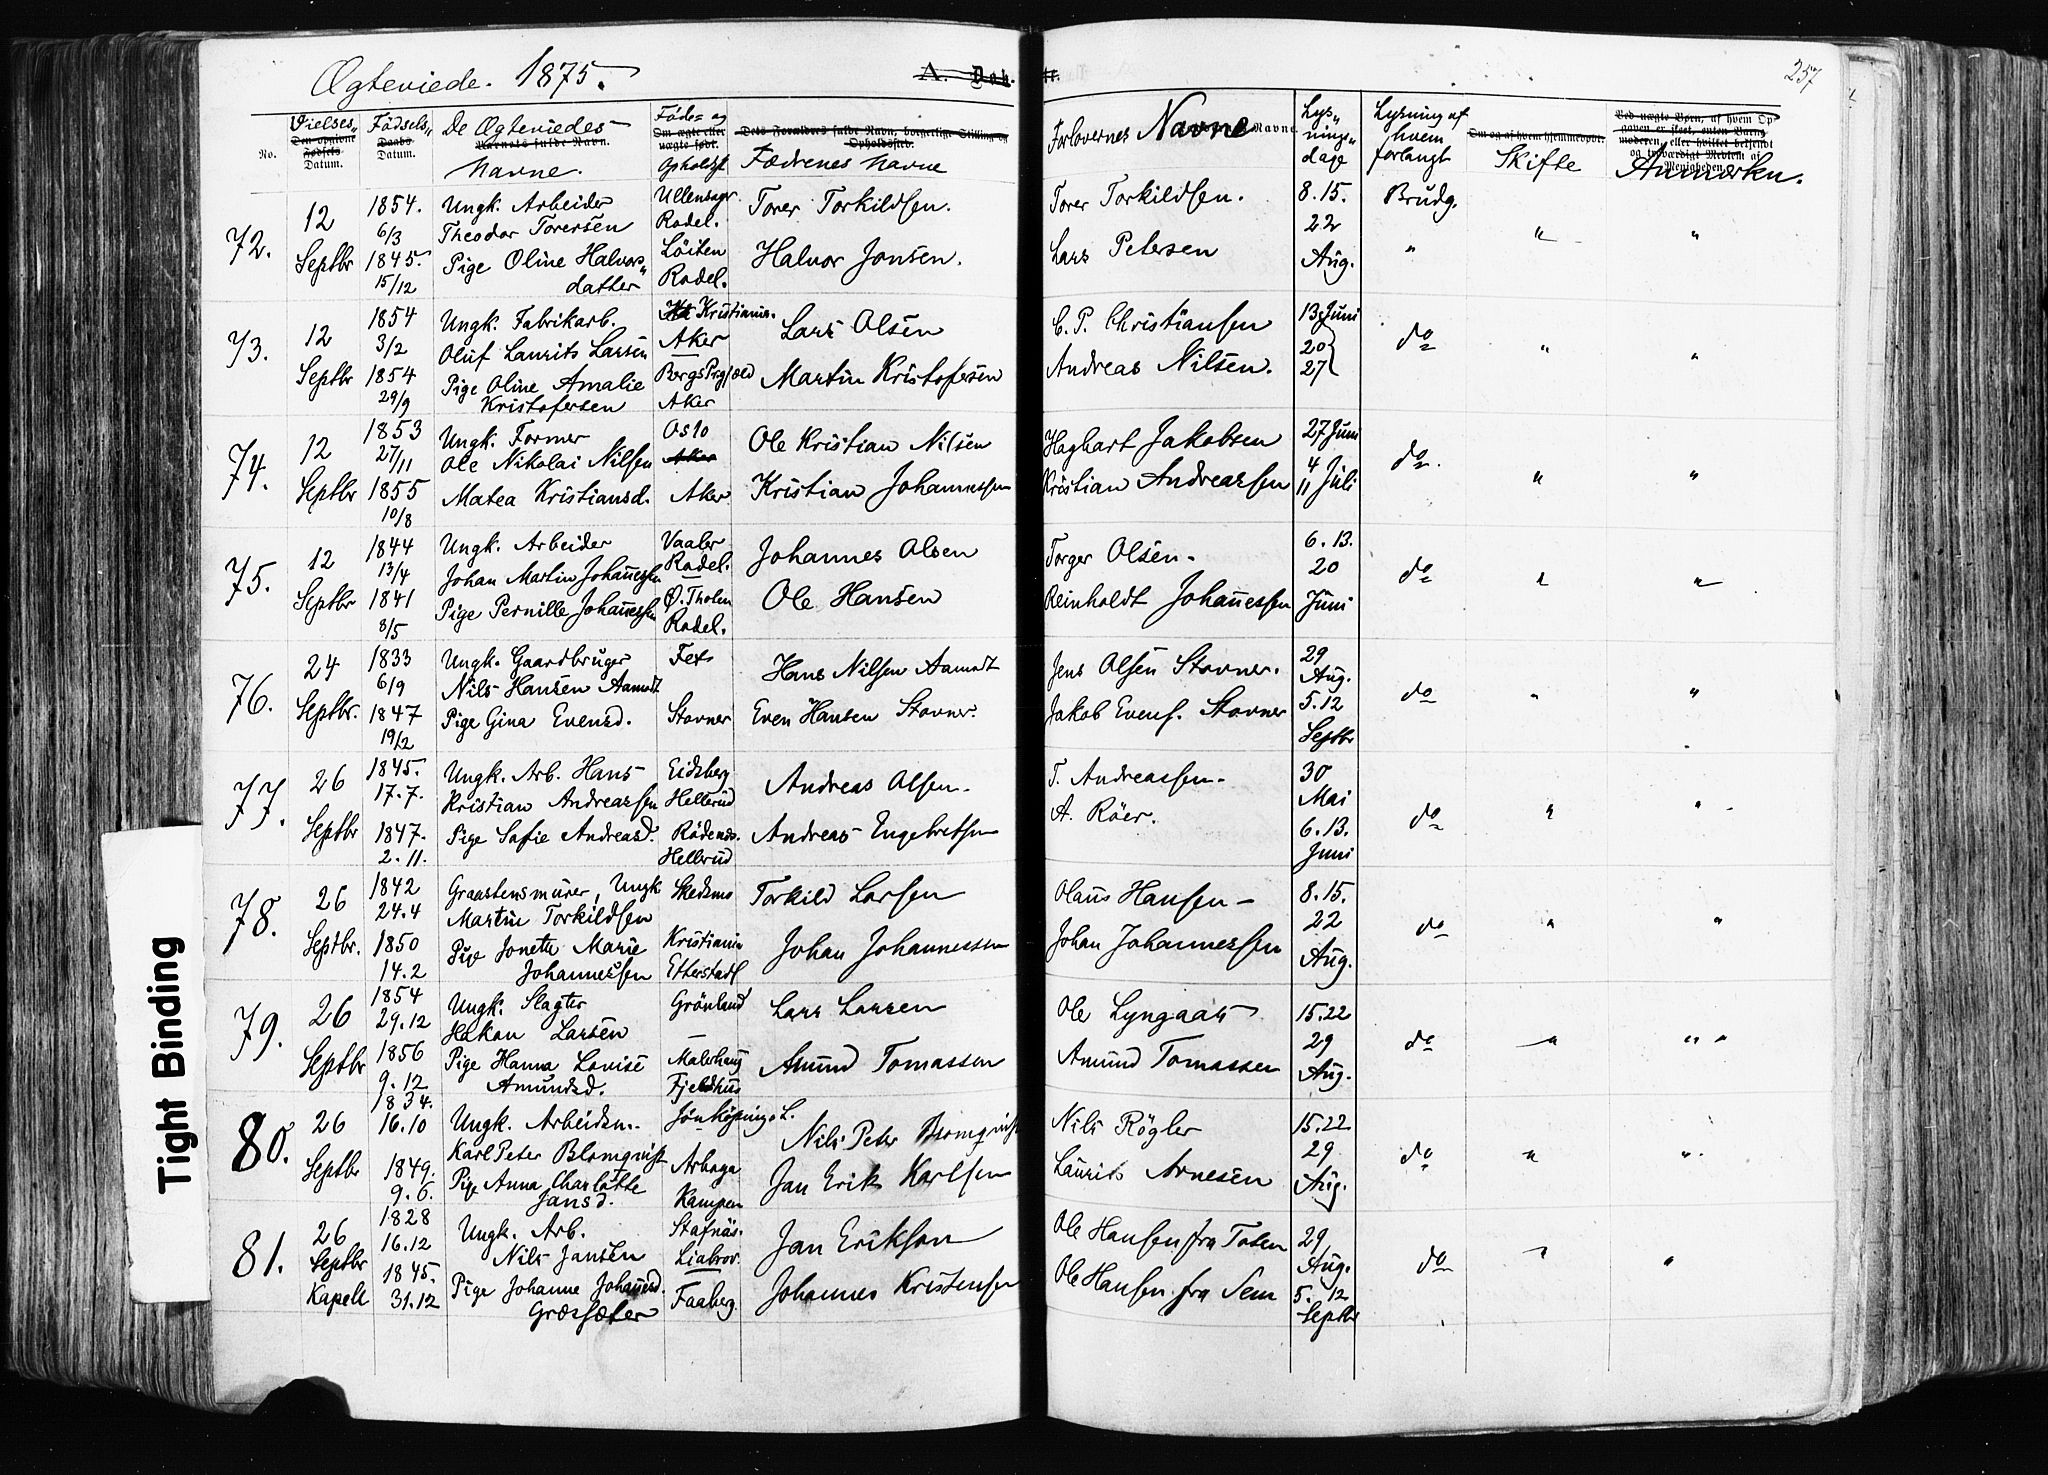 Ægteviede. 1875.
A. Døb
te.
257
No.
Vielses-
Den opgivne
Fødsels
Datum.
Fødsels-
Daabs
Datum.
De Ægteviedes
Barnets fulde Navn.
Navne.
Føde- og
Om ægte eller
uægte født.
Opholdst
Dets Forældres fulde Navn, borgerlige Stilling og
Opholdssted.
Fædrenes Navne
Forlovernes Navne Navne.
Lys-
nings-
dage
Lysning af
hvem
forlangt
Om og af hvem hjemmedøbt.
Skifte
Ved uægte Børn, af hvem Op
gaven er skeet, enten Barns
moderen, eller hvilket betjendt
og troværdigt Medlem af
Menigheden.
Anmærkn.
72.
12
Septbr
1854.
6/3
1845.
15/12
Ungk. Arbeider
Theodor Torersen
Pige Oline Halvors-
datter
Ullensagr.
Rodel.
Löiten
Rodel.
Torer Torkildsen.
Halvor Jonsen.
Torer Torkildsen.
Lars Petersen
8. 15.
22
Aug.
Brudg.
"
"
"
73.
12
Septbr
1854
3/2
1854
29/9
Ungk. Fabrikarb.
Oluf Laurits Larsen
Pige Oline Amalie
Kristofersen
Kristiania.
Aker
Bergs Prgjæld
Aker
Lars Olsen
Martin Kristofersen
C. P. Christiansen
Andreas Nilsen.
13 Juni
20
27
do
"
"
74.
12
Septbr
1853
27/11
1855
10/8
Ungk. Former
Ole Nikolai Nilsen
Matea Kristiansd.
Oslo
Aker
Aker
Ole Kristian Nilsen
Kristian Johannessen
Haghart Jakobsen
Kristian Andreassen
27 Juni
4
11 Juli
do.
"
"
75.
12
Septbr
1844
13/4
1841
8/5
Ungk. Arbeider
Johan Martin Johannessen
Pige Pernille Johannessen
Vaaler
Rodel.
Ø. Tholen
Rodel.
Johannes Olsen
Ole Hansen
Torger Olsen.
Reinholdt Johannessen
6. 13.
20
Juni
do
"
"
76.
24
Septbr.
1833
6/9
1847
19/2
Ungk. Gaardbruger
Nils Hansen Aamodt
Pige Gina Evensd.
Fet
Stovner
Hans Nilsen Aamodt
Even Hansen Stovner.
Jens Olsen Stovner.
Jakob Evens. Stovner
29
Aug.
5. 12
Septbr
do
"
"
77.
26
Septbr
1845.
17. 7.
1847.
2. 11.
Ungk. Arb. Hans
Kristian Andreassen
Pige Sofie Andreasd.
Eidsberg
Hellerud
Rödenss.
Hellerud
Andreas Olsen.
Andreas Engebretsen
T. Andreassen.
A. Röer.
30
Mai
6. 13.
Juni
do
"
"
78.
26
Septbr.
1842
24.4
1850
14.2
Graastensmurer, Ungk
Martin Torkildsen
Pige Jonette Marie
Johannessen
Skedsmo
Kristiania
Etterstad
Torkild Larsen
Johan Johannessen
Olaus Hansen
Johan Johannessen
8. 15.
22
Aug.
do
"
"
79.
26
Septbr
1854
29.12
1856
9. 12
Ungk. Slagter
Hakon Larsen
Pige Hanna Lovise
Amundsd.
Grönland
Malerhaug
Fjeldhus
Lars Larsen
Amund Tomassen
Ole Lyngaas
Amund Tomassen
15. 22
29
Aug.
do
"
"
80.
26
Septbr
1834.
16.10
1849.
9. 6.
Ungk. Arbeidsm.
Karl Peter Blomqvist
Pige Anna Charlotte
Jansd.
Jönköpings L.
Arboga
Kampen
Nils Peter Blomqvist
Jan Erik Karlsen
Nils Rögler
Laurits Arnesen
15. 22
29
Aug.
do
"
"
81.
26
Septbr
Kapell
1828
16.12
1845.
31.12
Ungk. Arb.
Nils Jansen
Pige Johanne Johannesd.
Græssæter
Stafnäs.
Liabrov.
Faaberg.
Jan Erikson
Johannes Kristensen
Ole Hansen fra Toten
Ole Hansen fra Sem
29
Aug.
5. 12
Septbr
do
"
"
Tight Binding